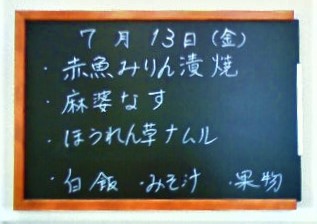 7月13日(金)
・赤魚みりん漬焼
・麻婆なす
・ほうれん草ナムル
・白飯 ・みそ汁 ・果物